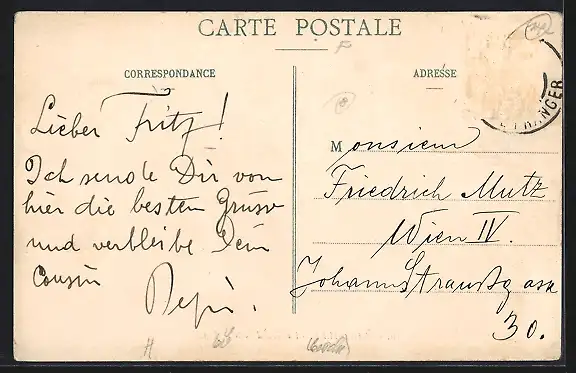 CARTE POSTALE
CORRESPONDANCE
Lieber Fritz!
Ich sende Dir von
hier die besten Grüsse
und verbleibe Dein
Cousin
Pepi.
ADRESSE
Monsieur
Friedrich Mutz
Wien IV.
Johann Straußgasse
30.
ETRANGER